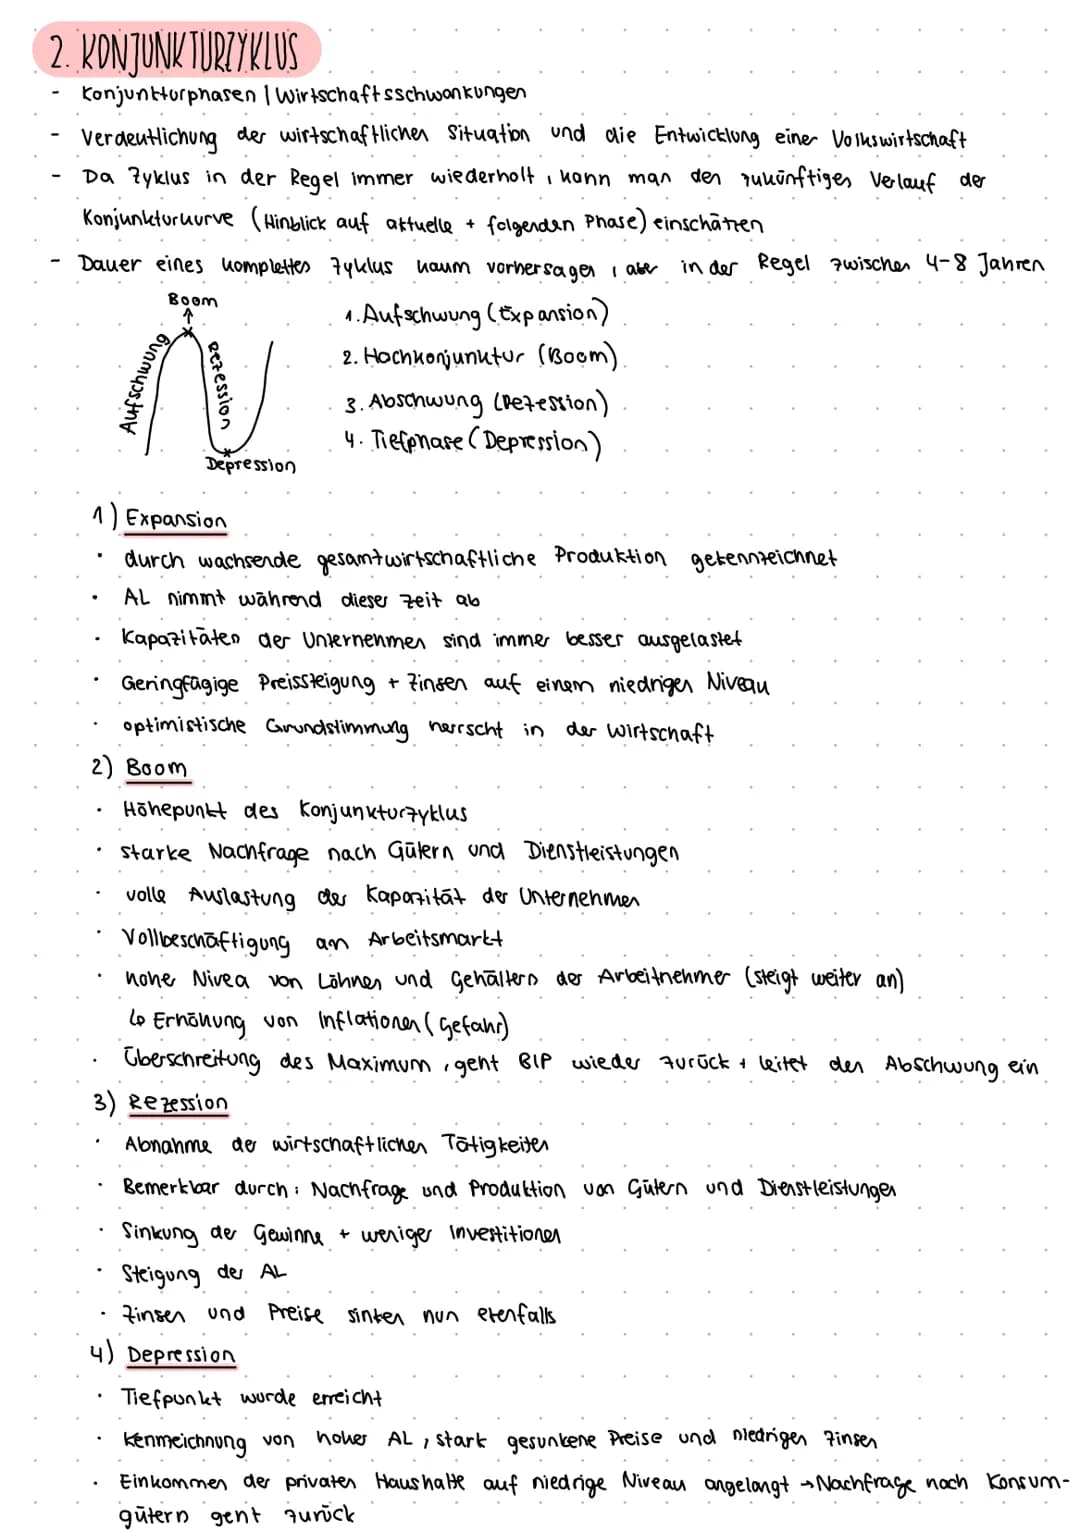 2. KONJUNKTURZYKLUS
- Konjunkturphasen | Wirtschaftsschwankungen
- Verdeutlichung der wirtschaftlichen Situation und die Entwicklung einer Volkswirtschaft
- Da Zyklus in der Regel immer wiederholt, kann man den zukünftigen Verlauf der
Konjunkturkurve (Hinblick auf aktuelle + folgenden Phase) einschätzen
- Dauer eines komplettes Zyklus kaum vorhersagen, aber in der Regel zwischen 4-8 Jahren
Boom
Aufschwung
Rezession
Depression
1. Aufschwung (Expansion)
2. Hochkonjunktur (Boom)
3. Abschwung (Rezession)
4. Tiefphase (Depression)
1) Expansion
• durch wachsende gesamtwirtschaftliche Produktion gekennzeichnet
• AL nimmt während dieser Zeit ab
• Kapazitäten der Unternehmen sind immer besser ausgelastet
• Geringfügige Preissteigung + Zinsen auf einem niedrigen Niveau
• optimistische Grundstimmung herrscht in der Wirtschaft
2) Boom
• Höhepunkt des Konjunkturzyklus
• starke Nachfrage nach Gütern und Dienstleistungen
• volle Auslastung der Kapazität der Unternehmen
• Vollbeschäftigung am Arbeitsmarkt
• hohe Nivea von Löhnen und Gehältern der Arbeitnehmer (steigt weiter an)
↳ Erhöhung von Inflationen (Gefahr)
• Überschreitung des Maximum, geht BIP wieder zurück + leitet den Abschwung ein
3) Rezession
• Abnahme der wirtschaftlichen Tätigkeiten
• Bemerkbar durch: Nachfrage und Produktion von Gütern und Dienstleistungen
• Sinkung der Gewinne + weniger Investitionen
• Steigung der AL
• Zinsen und Preise sinken nun ebenfalls
4) Depression
• Tiefpunkt wurde erreicht
• Kennzeichnung von hoher AL, stark gesunkene Preise und niedrigen Zinsen
• Einkommen der privaten Haushalte auf niedrige Niveau angelangt → Nachfrage nach Konsum-
gütern geht zurück